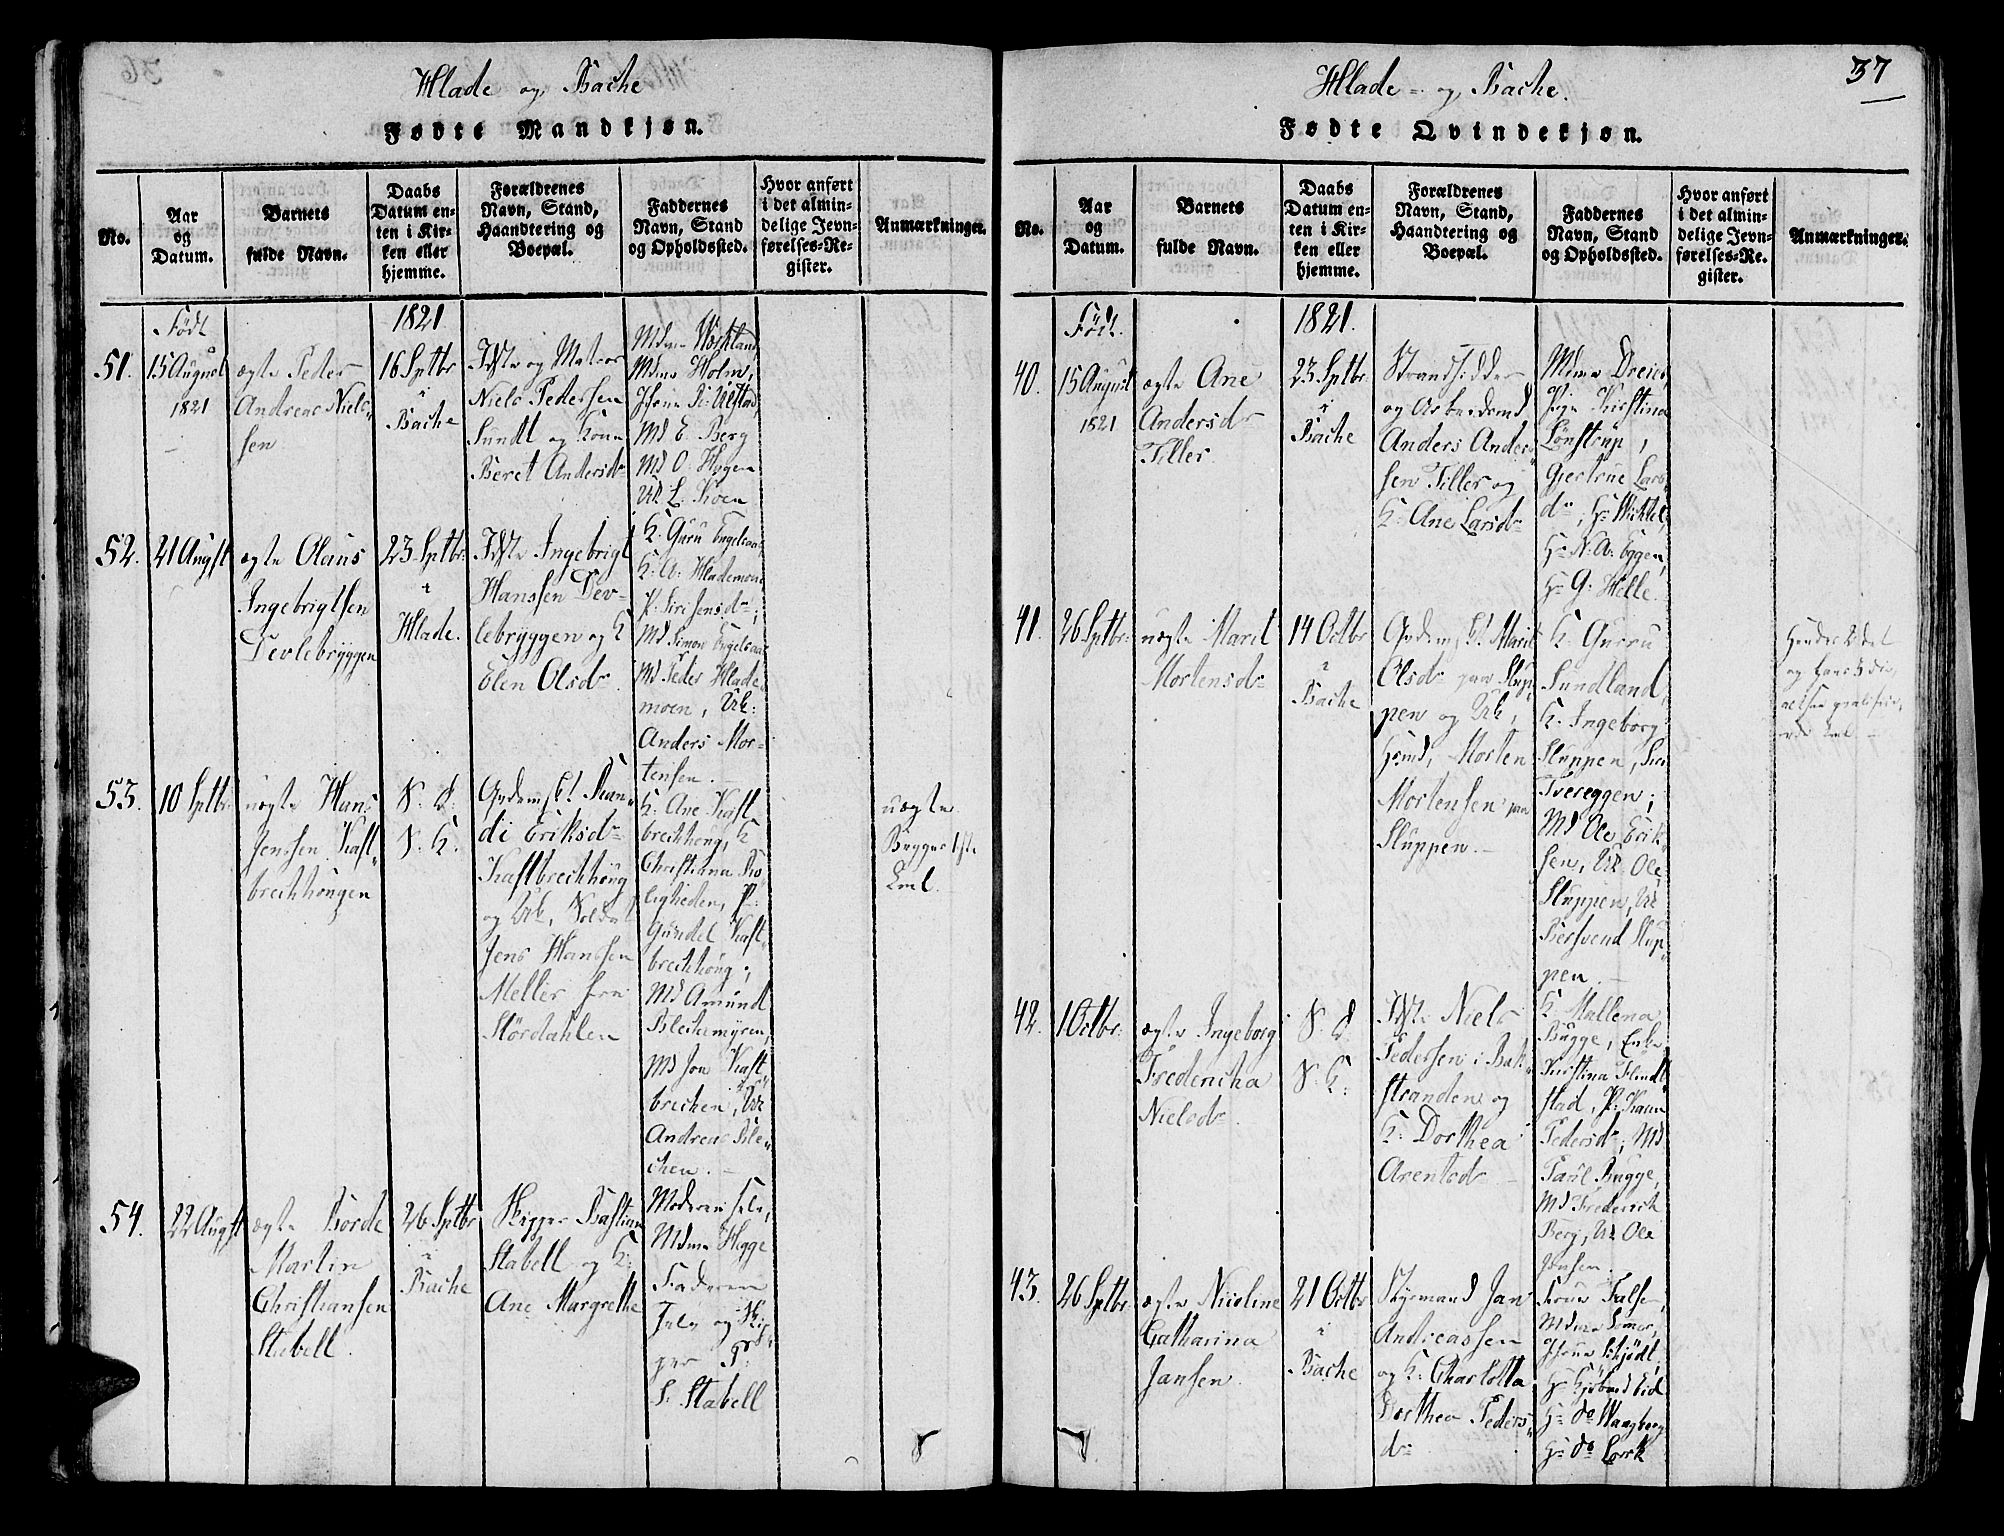 Hlade og Bache
Fødte Mandkjøn.
No.
Aar
og
Datum.
Barnets
fulde Navn.
Daabs
Datum en-
ten i Kir-
ken eller
hjemme.
Forældrenes
Navn, Stand,
Haandtering og
Boepæl.
Faddernes
Navn, Stand
og Opholdssted.
Hvor anført
i det almin-
delige Jevn-
førelses-Re-
gister.
Anmærkninger.
Født
1821
51.
15 August
1821
ægte Peder
Andreas Niel-
sen
16 Sptbr
i
Bache
Niels Pedersen
Sundt og Kone
Beret Andersdr
Mdme Holm,
Md E. Berg
Md O. Hagen
Uk L. Koen
52.
21 Augst
ægte Olaus
Ingebrigtsen
Devlebryggen
23 Sptbr
i
Hlade.
Idste Ingebrigt
Hanssen Dev-
lebryggen og K
Elen Olsdr
K. Guru Engelsaas
K. A. Hlademoen
P. Siri Jensdr;
Md Simon Engelsaas
Md Peder Hlade-
moen, Uk:
Anders Mor-
tensen.
53.
10 Sptbr
uægte Hans
Jenssen Kast-
brechhougen
S. D.
S. K.
Gudem, Pt Ran-
di Eriksdr
Kastbrechhoug
og Uk, Soldat
Jens Hanssen
Meller fra
Størdahlen
K. Ane Kast-
brechhoug, K
Christiana Ro-
ligheden, P.
Gundel Kast-
brechhoug;
Md Amund
Blechemyren,
Md Jon Kast-
brechen, Uk
Andreas Ble-
chen.
uægte
54.
22 Augst
ægte Borde
Martin
Christiansen
Stabell.
26 Sptbr
i
Bache
Skipper Bastian
Stabell og K:
Ane Margrethe
Moderen selv,
Mdme Hegge
Faderen
selv og Skip-
per P.
S. Stabell
Hlade og Bache.
37
Fødte Qvindekjøn.
No.
Aar
og
Datum.
Barnets
fulde Navn.
Daabs
Datum en-
ten i Kir-
ken eller
hjemme.
Forældrenes
Navn, Stand,
Haandtering og
Boepæl.
Faddernes
Navn, Stand
og Opholdssted.
Hvor anført
i det almin-
delige Jevn-
førelses-Re-
gister.
Anmærkninger.
Født.
1821.
40.
15 August
1821
ægte Ane
Andersdr
Tiller.
23 Sptbr
i
Bache
Strandsidder
og Arbeidsmd
Anders Ander-
sen Tiller og
K: Ane Larsdr
Mdme Dreier,
Pige Kirstina
Lønstrup,
Gjertrue Lars-
dr, Hr Wichtel,
Hr N. A. Eggen,
Hr G. Helle.
41.
26 Sptbr:
uægte Marit
Mortensdr
14 Octbr
i
Bache
Gudem, Pt Marit
Olsdr paa Slup-
pen og Uk,
Morten
Mortensen paa
Sluppen.
K. Gurru
Sundland,
K. Ingeborg
Sluppen,
Tvereggen;
Md Ole Erik-
sen, Uk Ole
Sluppen, Uk
Bersvend Slup-
pen.
42.
1 Octbr:
ægte Ingeborg
Fredericha
Nielsdr
S. D.
S. K:
Idste Niels
Pedersen i Bak-
stranden og
K: Dorthea
Arentsdr
K. Mallena
Bugge, Enke
Kirstina Flindt-
stad, P. Karen
Pedersdr; Md
Paul Bugge,
Md Frederich
Berg, Uk Ole
Jonsen.
43.
26 Sptbr:
ægte Nicoline
Catharina
Jansen.
21 Octbr
i
Bache
Styrmand Jan
Andreassen
og K: Charlotta
Dorthea Peders-
dr
Frue Falsen,
Hr do Waagberg
Hr do Lorck